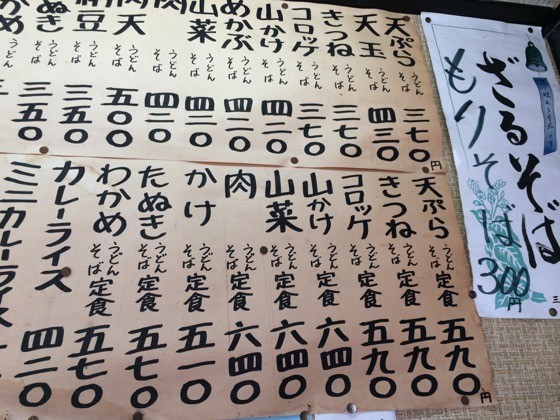 ざるそば
もりそば 300円
天ぷら うどん そば 三七〇円
天玉 うどん そば 四三〇
きつね うどん そば 三七〇
コロッケ うどん そば 三七〇
山かけ うどん そば 四二〇
めかぶ うどん そば 四二〇
山菜 うどん そば 四二〇
肉 うどん そば 四二〇
肉天 うどん そば 五〇〇
納豆 うどん そば 三五〇
ぬき うどん そば 三五〇
かめ
天ぷら うどん そば 定食 五九〇円
きつね うどん そば 定食 五九〇
コロッケ うどん そば 定食 五九〇
山かけ うどん そば 定食 六四〇
山菜 うどん そば 定食 六四〇
肉 うどん そば 定食 六四〇
かけ うどん そば 定食 五一〇
たぬき うどん そば 定食 五七〇
わかめ うどん そば 定食 五七〇
カレーライス 四二〇
ミニカレーライス